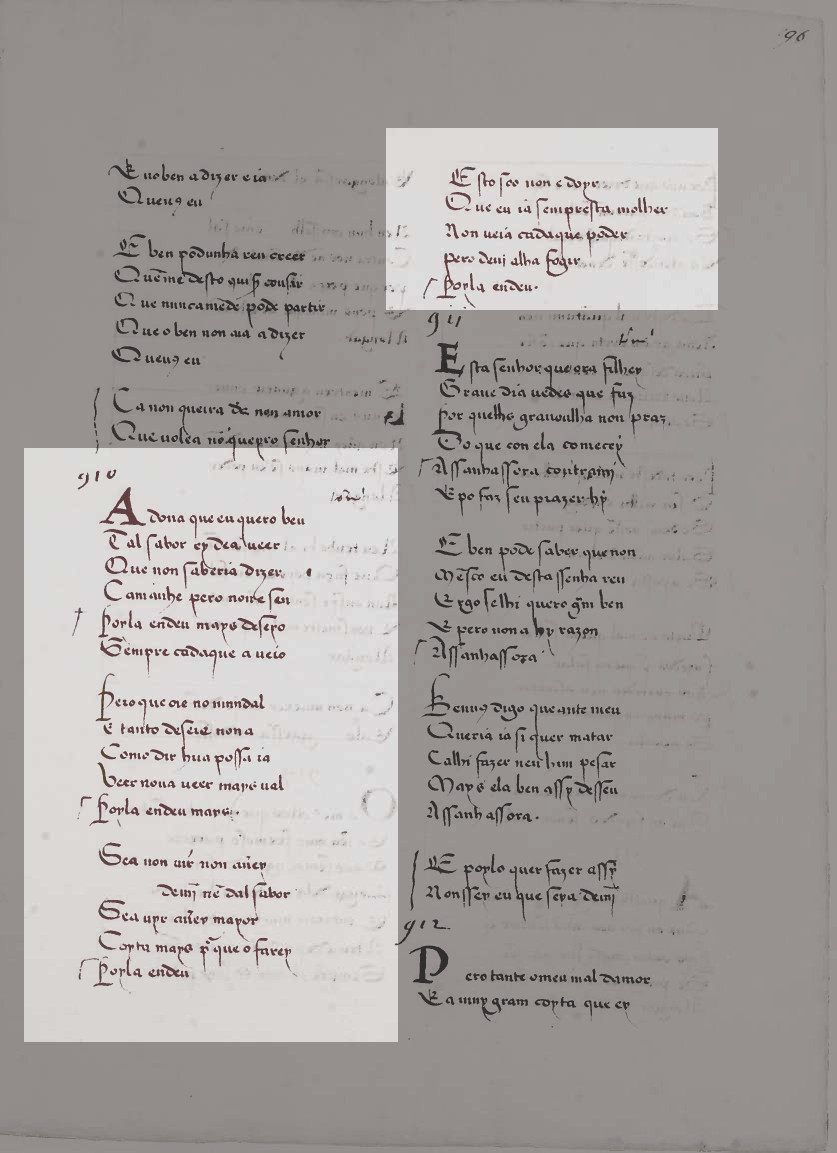 96
E uoben a dizer e ia
Queu9 eu
E ben podunha reu creer
Que me desto quis couſar
Que nunca mede pode partir
Que o ben non aia a dizer
Queu9 eu
Ca non queira de nen amor
Que uolea no quero senhor
910
A dona que eu quero beu
Tal sabor ey dea ueer
Que non saberia dizer
Camanhe pero noite sen
Porla endeu mays deseio
Sempre cada que a ueio
Pero que ore no mundal
E tanto deseie non a
Como dir hua possa ia
Veer noua ueer mays ual
Porla endeu mays
Sea non uir non auey
Demi nē dal sabor
Sea uyr auey mayor
Coyta mays p que o farey
Porla endeu
Esto sco non e doyr
Que eu ia sempresta molher
Non ueia cada que poder
pero demi alha fogir
Porla endeu
911
Esta senhor que ora filhey
Graue dia uedes que fuy
Por quelhs grauoulha non praz
Do que con ela comecey
Assanhassora contrami
E po faz seu prazer hy
E ben pode saber que non
Mesco eu desta ssenha reu
Ergo selhi quero gm ben
E pero non a hy razon
Assanhassora
Benu9 digo que ante meu
Queria ia si quer matar
Calhi fazer neu huu pesar
Mays ela ben assy desseu
Assanh assora
E poylo quer fazer assy
Non ssey eu que seya demi
912
Pero tante o meu mal damor
E a muy gram coyta que ey